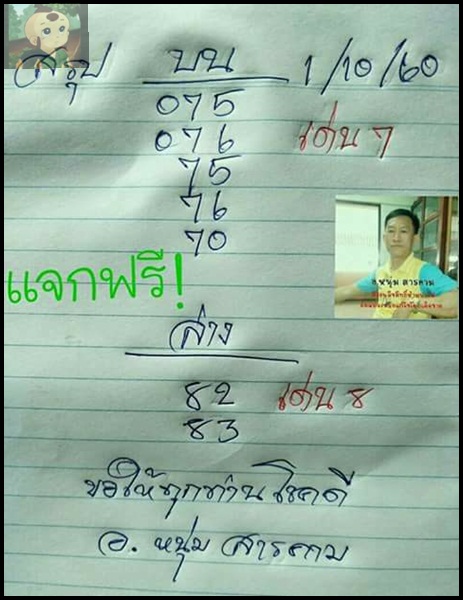 สรุป บน 1/10/60
075
076 เด่น 7
75
76
70
แจกฟรี!
อ.หนุ่ม สารคาม
ล่าง
82 เด่น 8
83
ขอให้ทุกท่านโชคดี
อ. หนุ่ม สารคาม